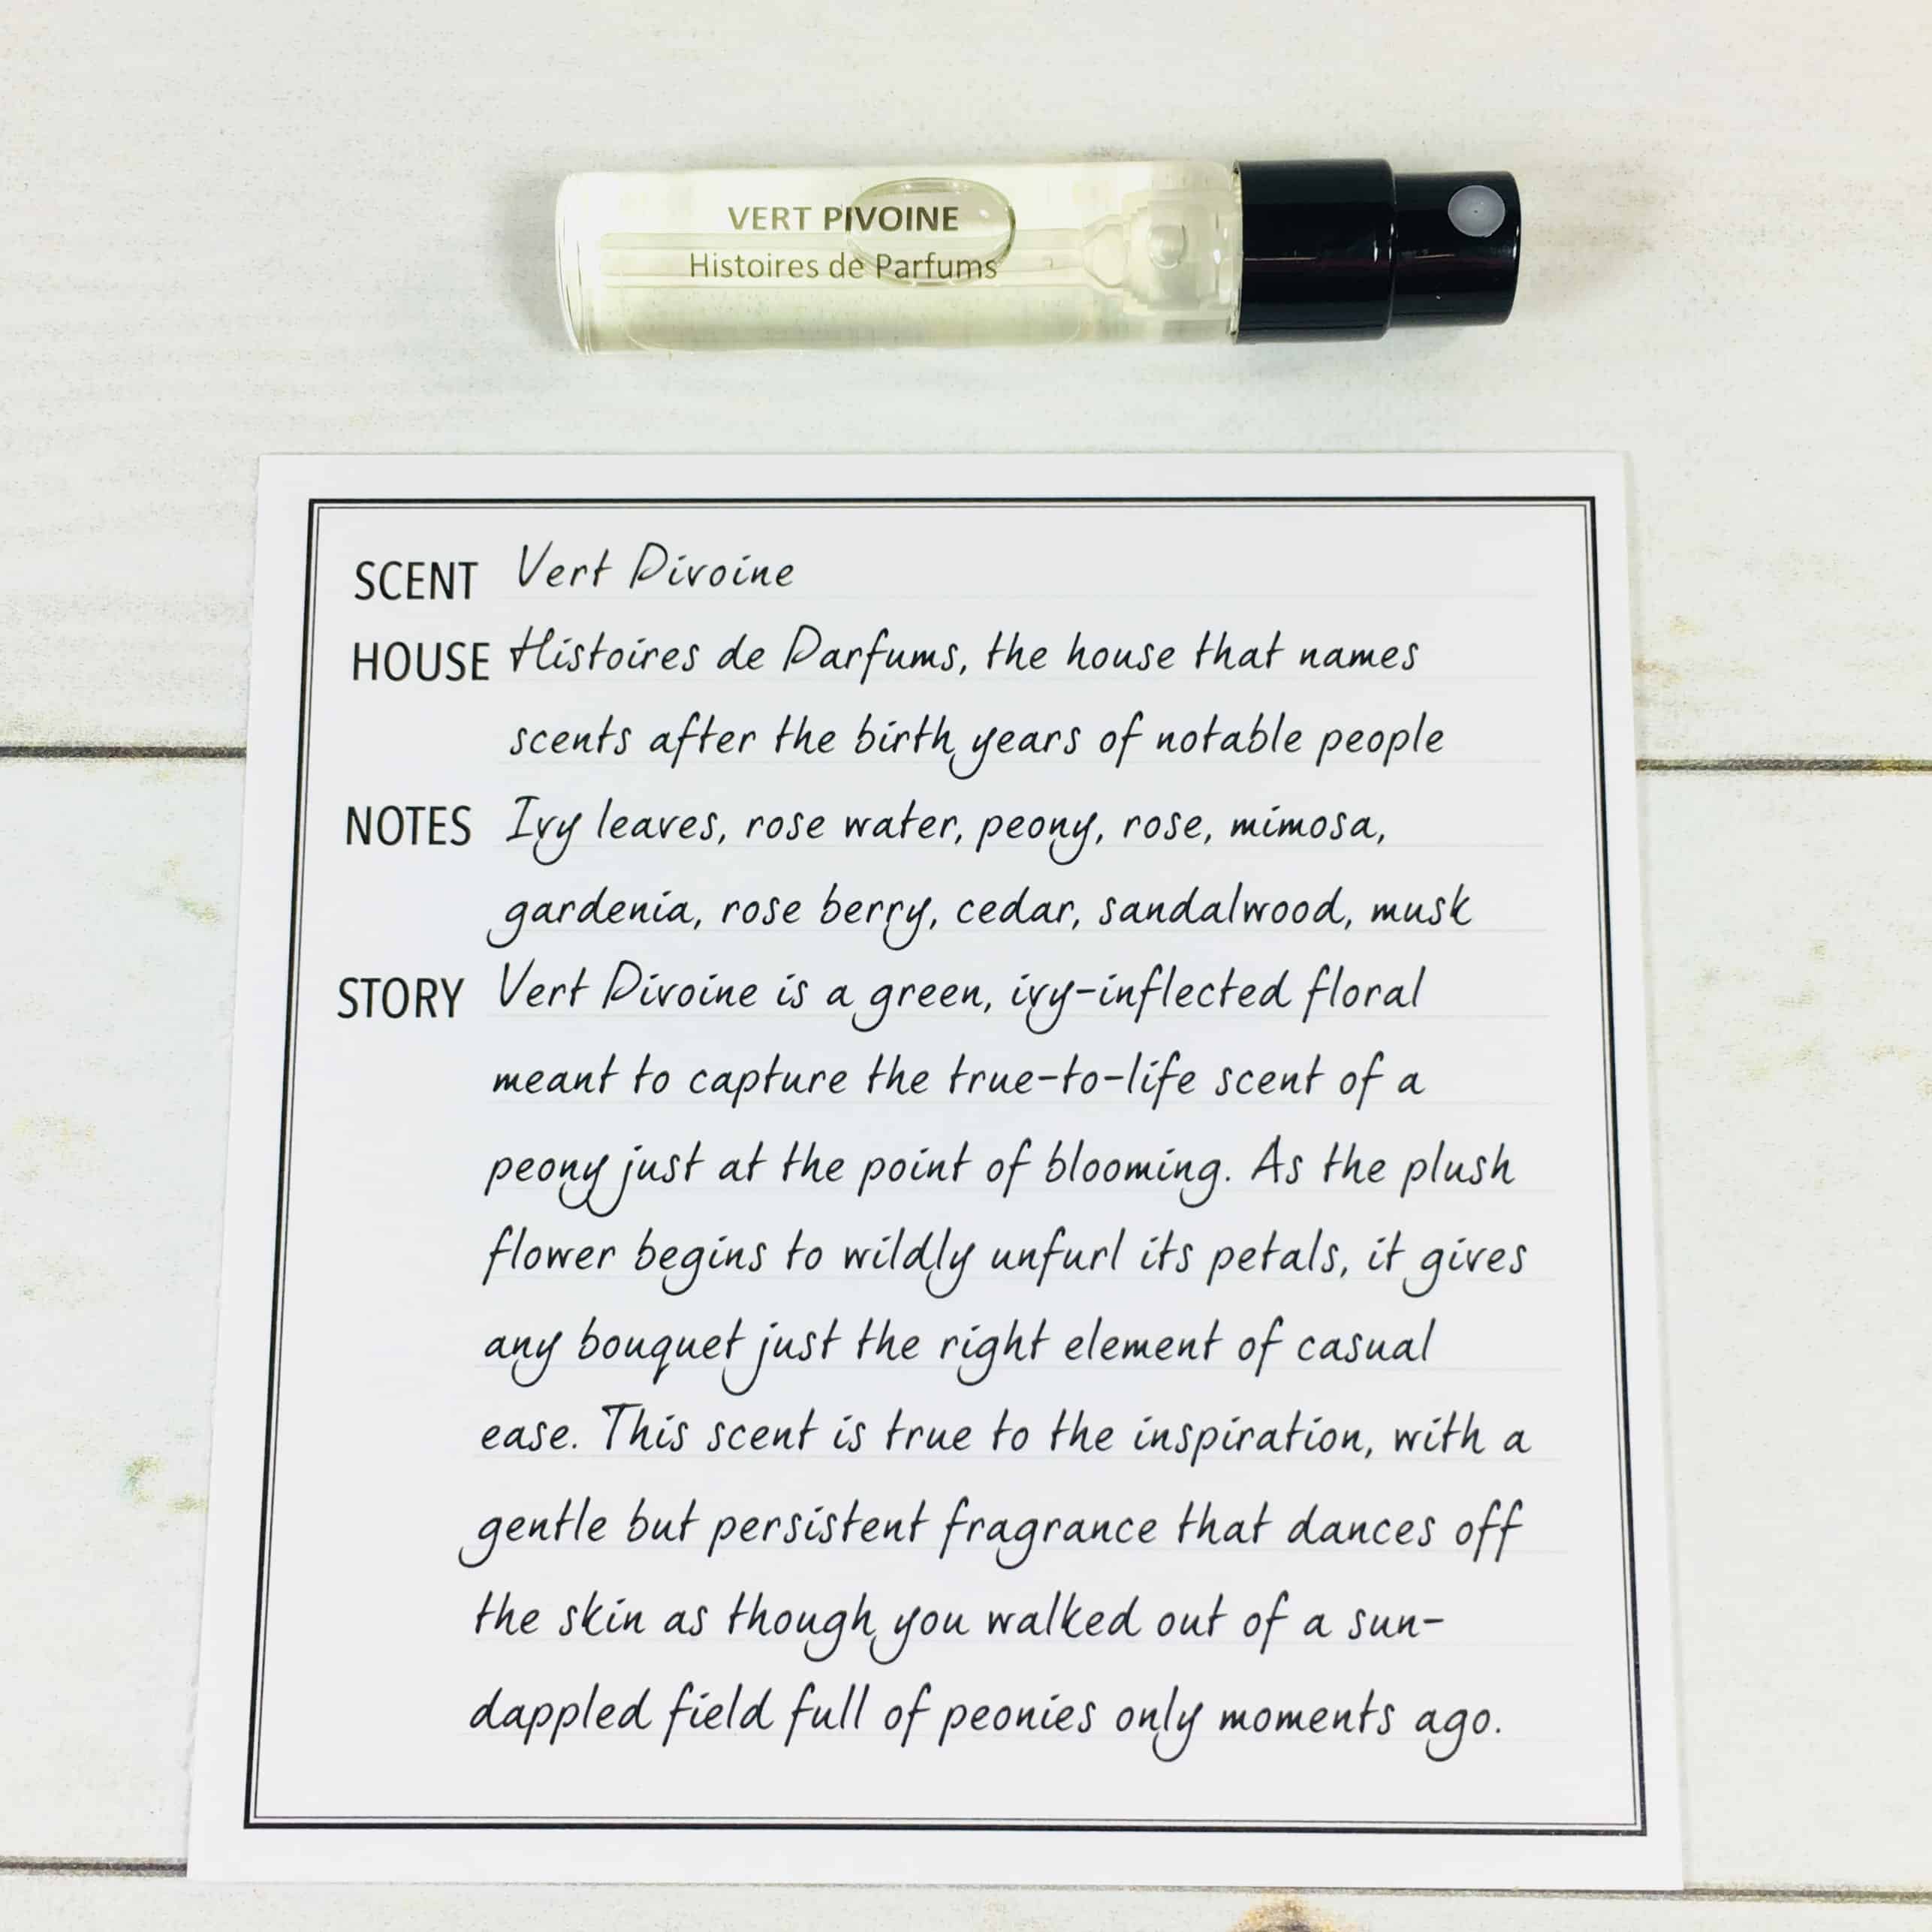 VERT PIVOINE
Histoires de Parfums
SCENT Vert Pivoine
HOUSE Histoires de Parfums, the house that names
scents after the birth years of notable people
NOTES Ivy leaves, rose water, peony, rose, mimosa,
gardenia, rose berry, cedar, sandalwood, musk
STORY Vert Pivoine is a green, ivy-inflected floral
meant to capture the true-to-life scent of a
peony just at the point of blooming. As the plush
flower begins to wildly unfurl its petals, it gives
any bouquet just the right element of casual
ease. This scent is true to the inspiration, with a
gentle but persistent fragrance that dances off
the skin as though you walked out of a sun-
dappled field full of peonies only moments ago.